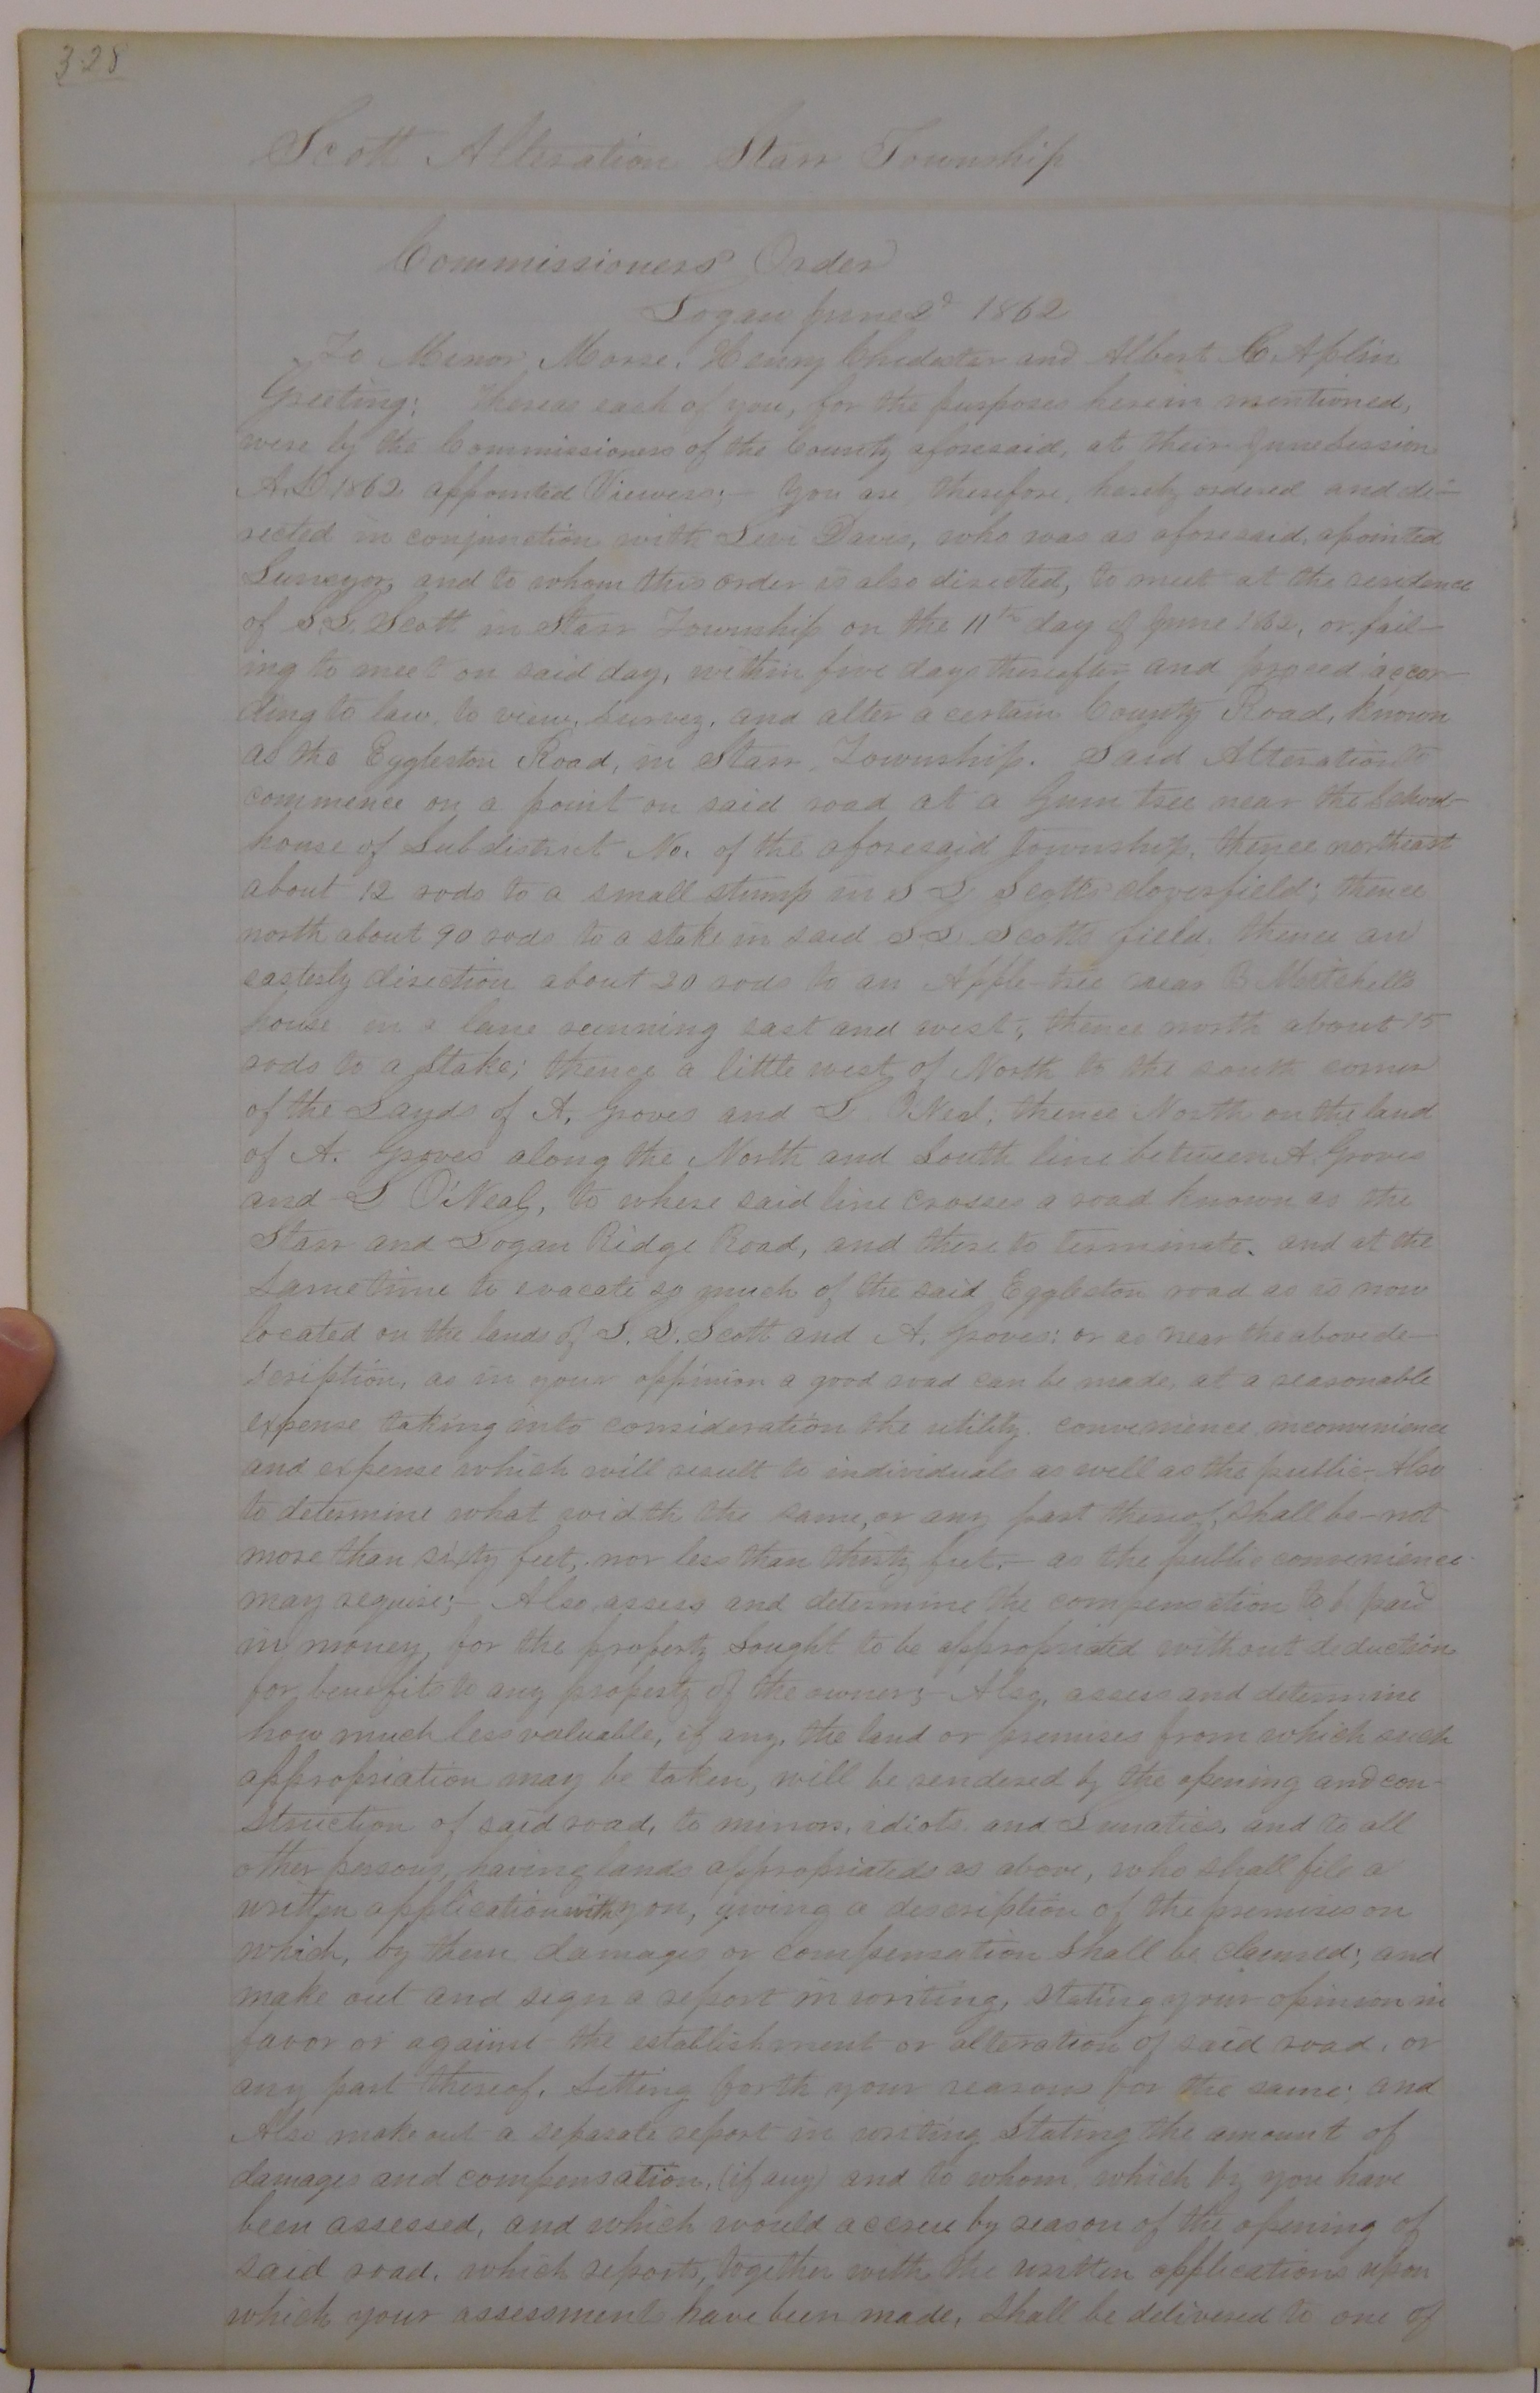 328
Scott Alteration Starr Township
Commissioners Order
Logan June 2d 1862
To Minor Morse, Henry Chidester and Albert C. Aplin
Greeting: Whereas each of you, for the purposes herein mentioned,
were by the Commissioners of the County aforesaid, at their June Session
A.D. 1862 appointed Viewers;— You are, therefore, hereby ordered and di-
rected in conjunction with Levi Davis, who was as aforesaid, apointed
Surveyor, and to whom this order is also directed, to meet at the residence
of S.S. Scott in Starr Township on the 11th day of June 1862, or fail-
ing to meet on said day, within five days thereafter and proceed accor-
ding to law, to view, survey, and alter a certain County Road, known
as the Eggleston Road, in Starr Township. Said Alteration to
commence on a point on said road at a Gum tree near the School-
house of Subdistrict No. of the aforesaid Township, thence northeast
about 12 rods to a small stump in S S Scotts cloverfield; thence
north about 90 rods to a stake in said S.S. Scotts field, thence an
easterly direction about 20 rods to an Apple-tree near B Mitchells
house in a lane running east and west; thence north about 15
rods to a Stake; thence a little west of North to the south corner
of the Lands of A. Groves and S. O'Neal, thence North on the land
of A. Groves along the North and South line between A. Groves
and S O'Neal, to where said line crosses a road known as the
Starr and Logan Ridge Road, and there to terminate. and at the
same time to evacate so much of the said Eggleston road as is now
located on the lands of S. S. Scott and A. Groves; or as near the above de-
scription, as in your oppinion a good road can be made, at a reasonable
expense taking into consideration the utility, convenience, inconvenience
and expense which will result to individuals as well as the public. Also
to determine what width the same, or any part thereof, shall be—not
more than sixty feet, nor less than thirty feet.— as the public convenience
may require;— Also, assess and determine the compensation to b paid
in money, for the property sought to be appropriated without deduction
for benefits to any property of the owner;— Also, assess and determine
how much less valuable, if any, the land or premises from which such
appropriation may be taken, will be rendered by the opening and con-
struction of said road, to minors, idiots and Lunatics, and to all
other persons, having lands appropriateds as above, who shall file a
written application with you, giving a description of the premises on
which, by them damages or compensation shall be claimed; and
make out and sign a report in writing, stating your opinion in
favor or against the establishment or alteration of said road, or
any part thereof, setting forth your reasons for the same; and
Also make out a separate report in writing stating the amount of
damages and compensation, (if any) and to whom, which by you have
been assessed, and which would accrue by reason of the opening of
said road, which reports, together with the written applications upon
which your assessments have been made, shall be delivered to one of